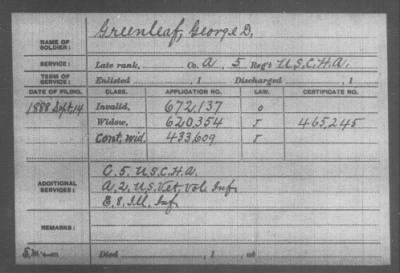 Greenleaf, George D.
NAME OF SOLDIER:
SERVICE: Late rank, Co. A, 5 Reg't U.S.C.H.A.
TERM OF SERVICE: Enlisted , 1 Discharged , 1
DATE OF FILING. CLASS. APPLICATION NO. LAW. CERTIFICATE NO.
1888 Sept. 14 Invalid, 672,137 0
Widow, 620,354 J 465,245
Cont. wid. 433,609 J
C. 5. U.S.C.H.A.
ADDITIONAL SERVICES: A. 2. U.S. Vet. Vols Inf.
E. 8. Ill. Inf.
REMARKS:
Died , 1 , at